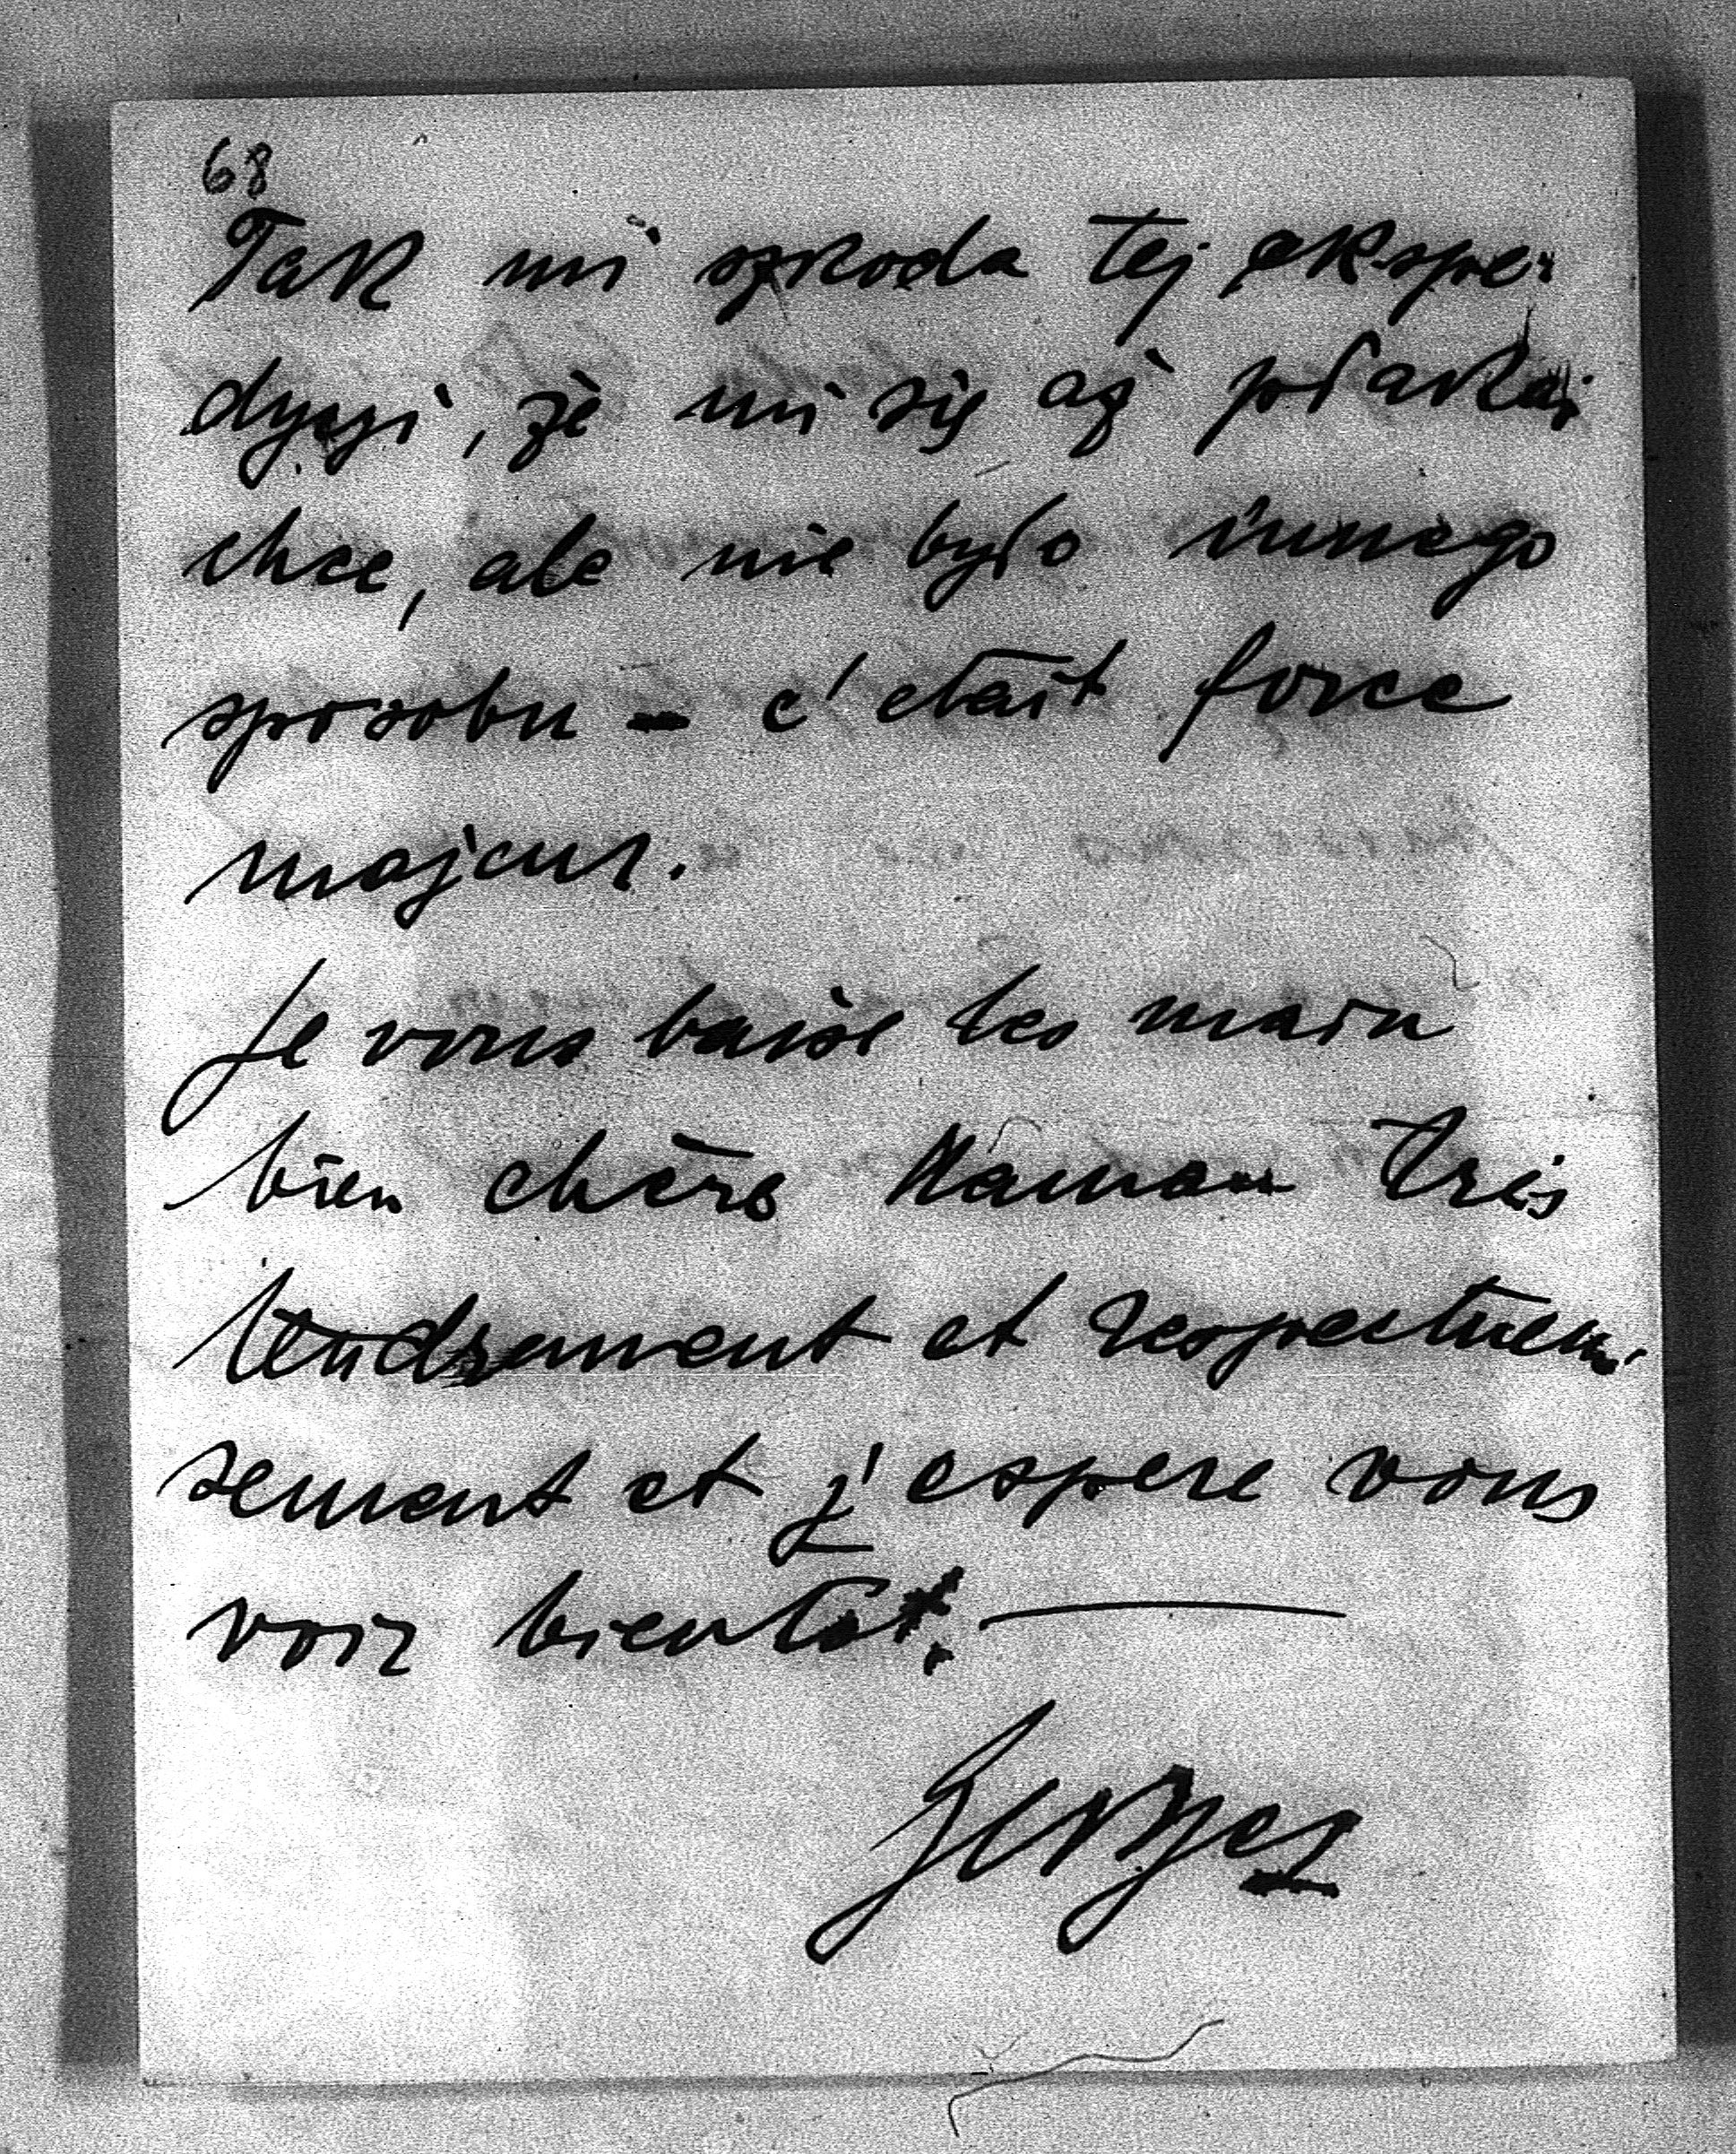 68
Tak mi szkoda tej ekspe-
dycji, że mi się aż płakać
chce, ale nie było innego
sposobu – c'était force
majeur.
Je vous baise les main
bien chère Maman très
tendrement et respectueu-
sement et j'espere vous
voir bientôt. —
Georges